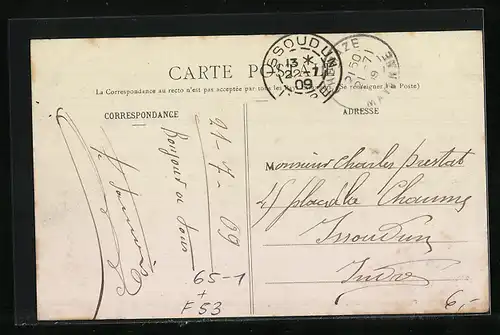 CARTE POSTALE
(La Correspondance au recto n'est pas acceptée par tous les Pays Etrangers. Se renseigner à la Poste)
CORRESPONDANCE
ADRESSE
ISSOUDUN
13 *
22-7
09
INDRE
21-7-09
Bonjour a tous
65-1
+
F53
Monsieur Charles prestat
place de la Chaume
Issoudun
Indre
6,-